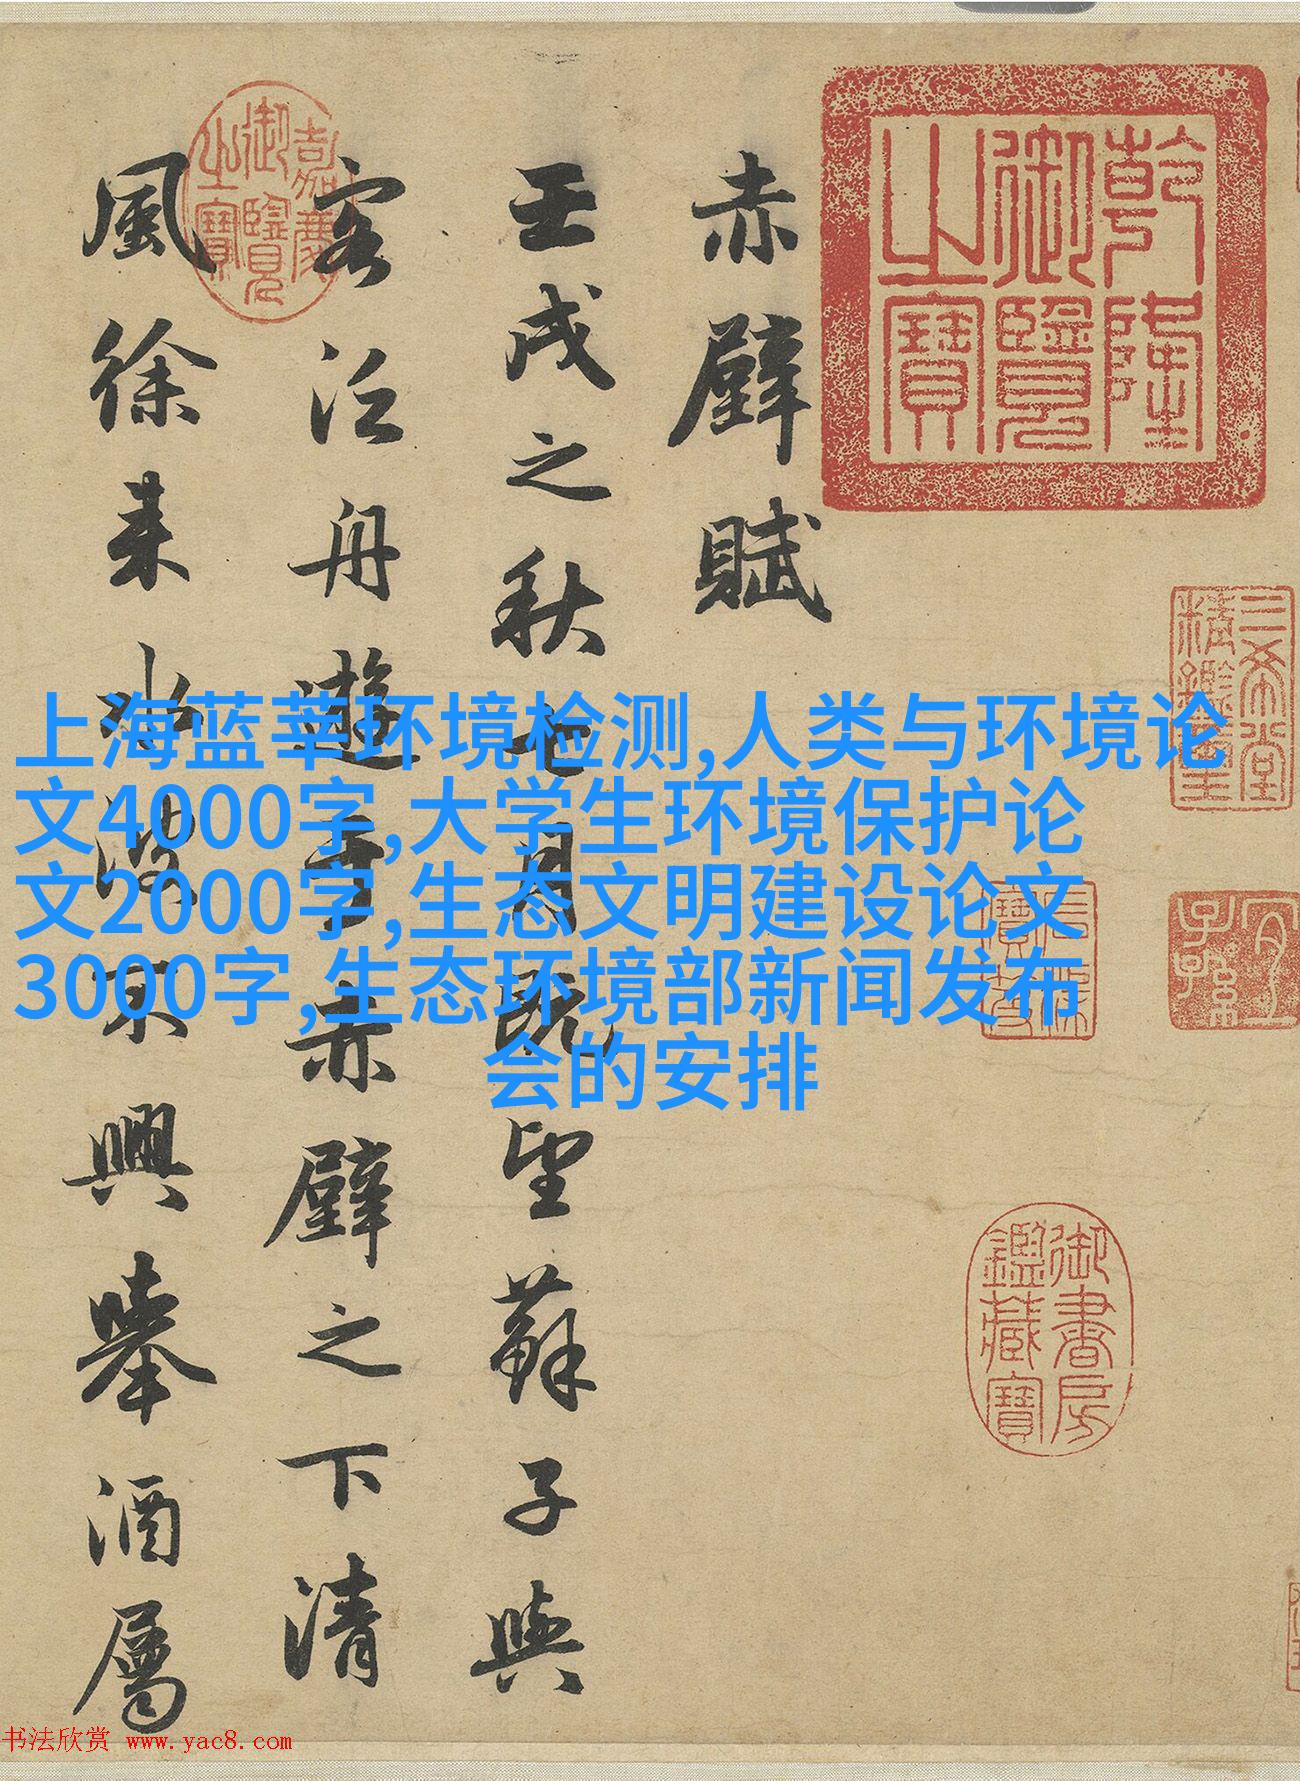 乾隆
御覽
之寶
三希堂
精鑑璽
宜
子孫
石渠
寶笈
御書房
鑑藏寶
赤壁賦
壬戌之秋七月既望蘇子與
客泛舟遊于赤壁之下清
風徐来水波不興舉酒屬
嘉慶
御覽
之寶
上海蓝莘环境检测,人类与环境论
文4000字,大学生环境保护论
文2000字,生态文明建设论文
3000字,生态环境部新闻发布
会的安排
书法欣赏 www.yac8.com